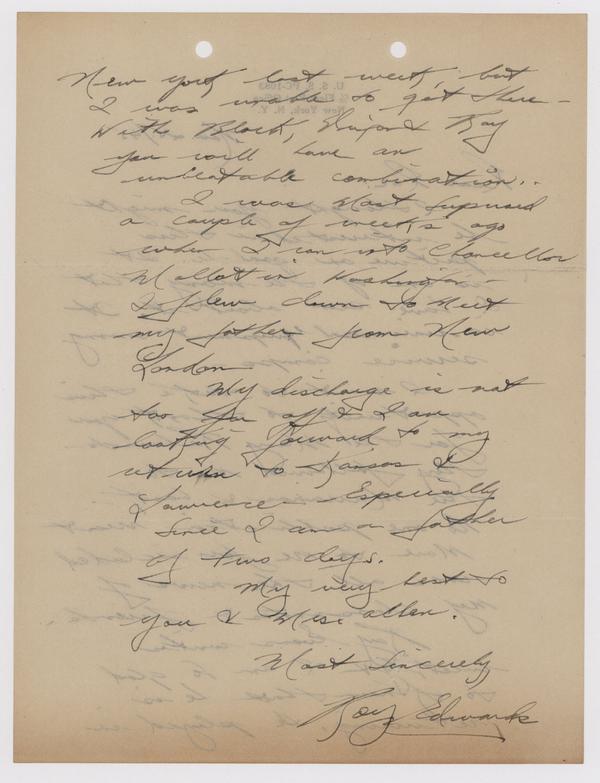 New York last week, but
I was unable to get there -
With Black, Evans & Ray
you will have an
unbeatable combination..
I was most suprised
a couple of weeks ago
when I ran into Chancellor
Mallott in Washington -
I flew down to meet
my father from New
London
My discharge is not
too far off & I am
looking forward to my
return to Kansas &
Lawrence - Especially
since I am a father
of two days.
My very best to
you & Mrs. Allen.
Most Sincerely
Roy Edwards